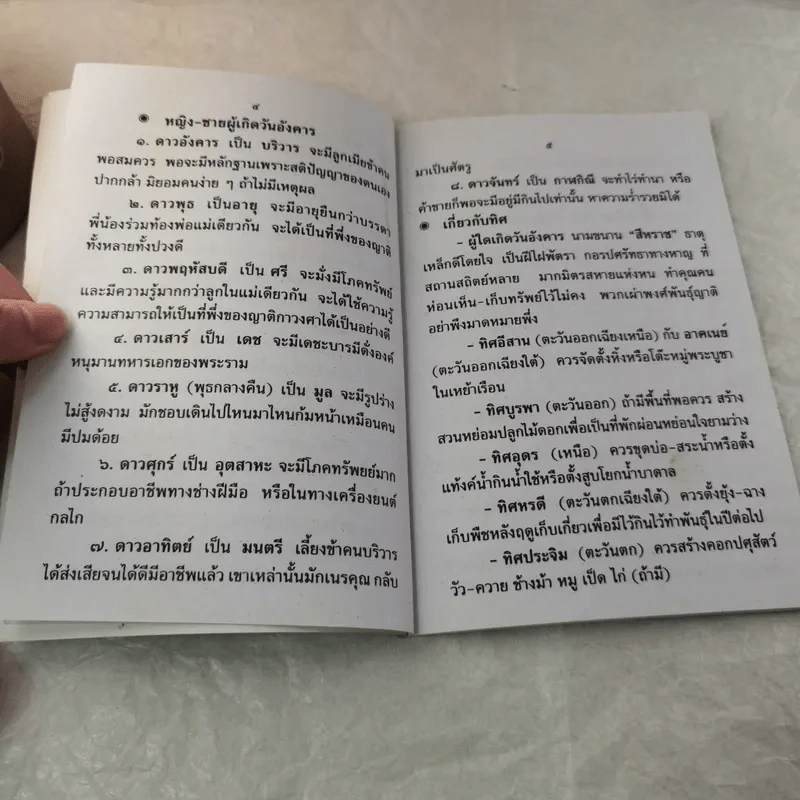 ๔
◉ หญิง-ชายผู้เกิดวันอังคาร
๑. ดาวอังคาร เป็น บริวาร จะมีลูกเมียข้าคน
พอสมควร พอจะมีหลักฐานเพราะสติปัญญาของตนเอง
ปากกล้า มิยอมคนง่าย ๆ ถ้าไม่มีเหตุผล
๒. ดาวพุธ เป็นอายุ จะมีอายุยืนกว่าบรรดา
พี่น้องร่วมท้องพ่อแม่เดียวกัน จะได้เป็นที่พึ่งของญาติ
ทั้งหลายทั้งปวงดี
๓. ดาวพฤหัสบดี เป็น ศรี จะมั่งมีโภคทรัพย์
และมีความรู้มากกว่าลูกในแม่เดียวกัน จะได้ใช้ความรู้
ความสามารถให้เป็นที่พึ่งของญาติกาวงศาได้เป็นอย่างดี
๔. ดาวเสาร์ เป็น เดช จะมีเดชะบารมีดั่งองค์
หนุมานทหารเอกของพระราม
๕. ดาวราหู (พุธกลางคืน) เป็น มูล จะมีรูปร่าง
ไม่สู้งดงาม มักชอบเดินไปไหนมาไหนก้มหน้าเหมือนคน
มีปมด้อย
๖. ดาวศุกร์ เป็น อุตสาหะ จะมีโภคทรัพย์มาก
ถ้าประกอบอาชีพทางช่างฝีมือ หรือในทางเครื่องยนต์
กลไก
๗. ดาวอาทิตย์ เป็น มนตรี เลี้ยงข้าคนบริวาร
ได้ส่งเสียจนได้ดีมีอาชีพแล้ว เขาเหล่านั้นมักเนรคุณ กลับ
๕
มาเป็นศัตรู
๘. ดาวจันทร์ เป็น กาฬกิณี จะทำไร่ทำนา หรือ
ค้าขายก็พอจะมีอยู่มีกินไปเท่านั้น หาความร่ำรวยมิได้
◉ เกี่ยวกับทิศ
- ผู้ใดเกิดวันอังคาร นามขนาน "สีหราช" ธาตุ
เหล็กดีโดยใจ เป็นฝีไฝพัตรา กอรปศรัทธาทางหาญ ที่
สถานสถิตย์หลาย มากมิตรสหายแห่งหน ทำคุณคน
ห่อนเห็น-เก็บทรัพย์ไว้ไม่คง พวกเผ่าพงศ์พันธุ์ญาติ
อย่าพึงมาดหมายพึ่ง
- ทิศอีสาน (ตะวันออกเฉียงเหนือ) กับ อาคเนย์
(ตะวันออกเฉียงใต้) ควรจัดตั้งหิ้งหรือโต๊ะหมู่พระบูชา
ในเหย้าเรือน
- ทิศบูรพา (ตะวันออก) ถ้ามีพื้นที่พอควร สร้าง
สวนหย่อมปลูกไม้ดอกเพื่อเป็นที่พักผ่อนหย่อนใจยามว่าง
- ทิศอุดร (เหนือ) ควรขุดบ่อ-สระน้ำหรือตั้ง
แท้งค์น้ำกินน้ำใช้หรือตั้งสูบโยกน้ำบาดาล
- ทิศหรดี (ตะวันตกเฉียงใต้) ควรตั้งยุ้ง-ฉาง
เก็บพืชหลังฤดูเก็บเกี่ยวเพื่อมีไว้กินไว้ทำพันธุ์ในปีต่อไป
- ทิศประจิม (ตะวันตก) ควรสร้างคอกปศุสัตว์
วัว-ควาย ช้างม้า หมู เป็ด ไก่ (ถ้ามี)